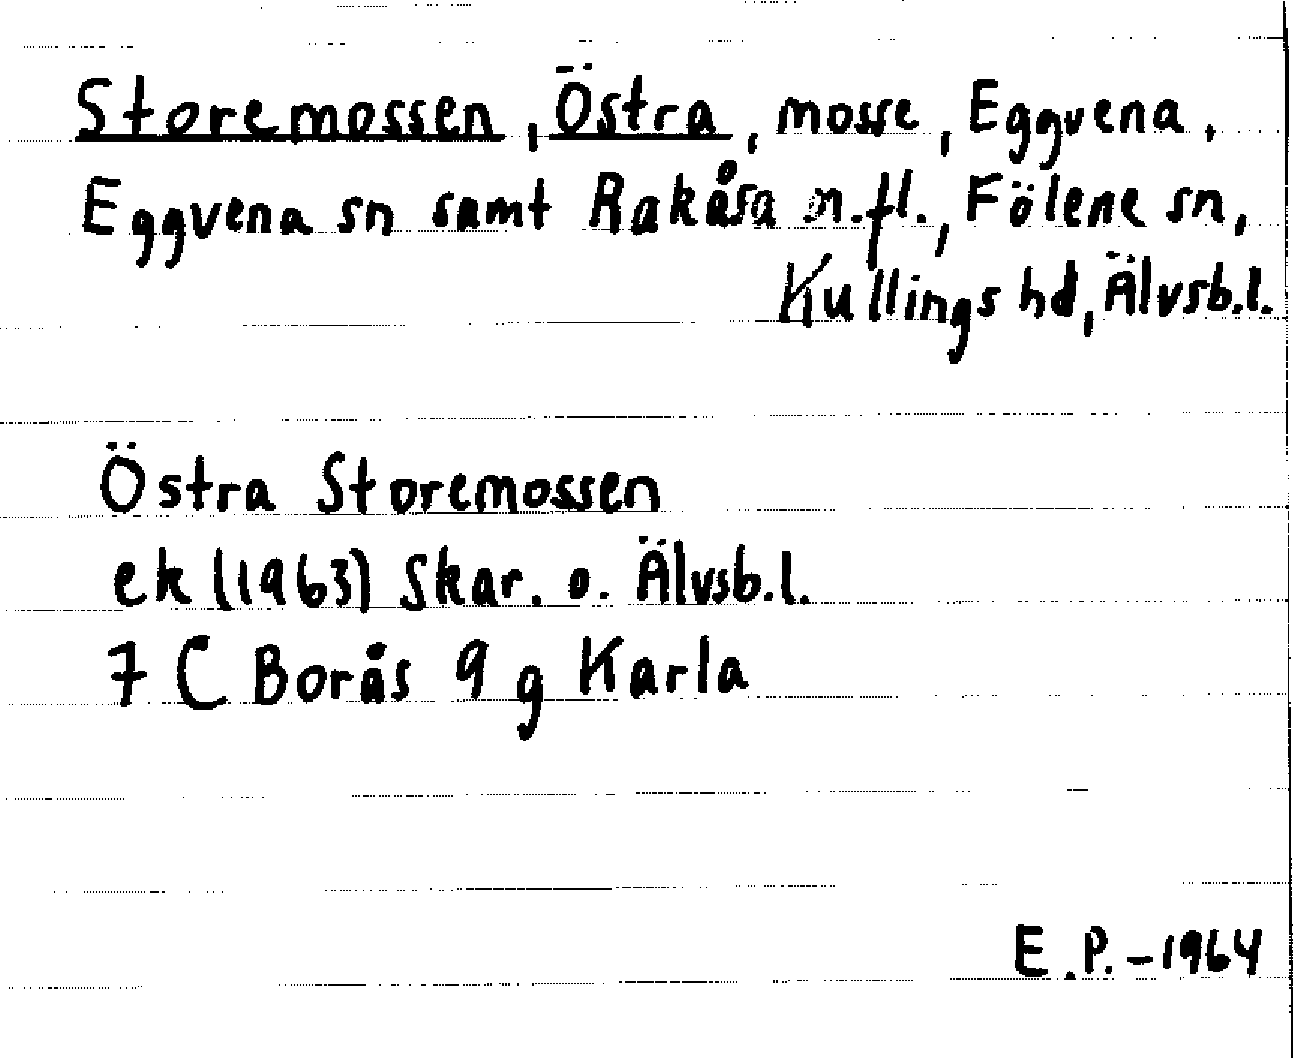 Storemossen, Östra, mosse, Eggvena,
Eggvena sn samt Rakåsa m.fl., Fölene sn,
Kullings hd, Älvsb.l.
Östra Storemossen
ek (1963) Skar. o. Älvsb.l.
7 C Borås 9 g Karla
E.P.-1964